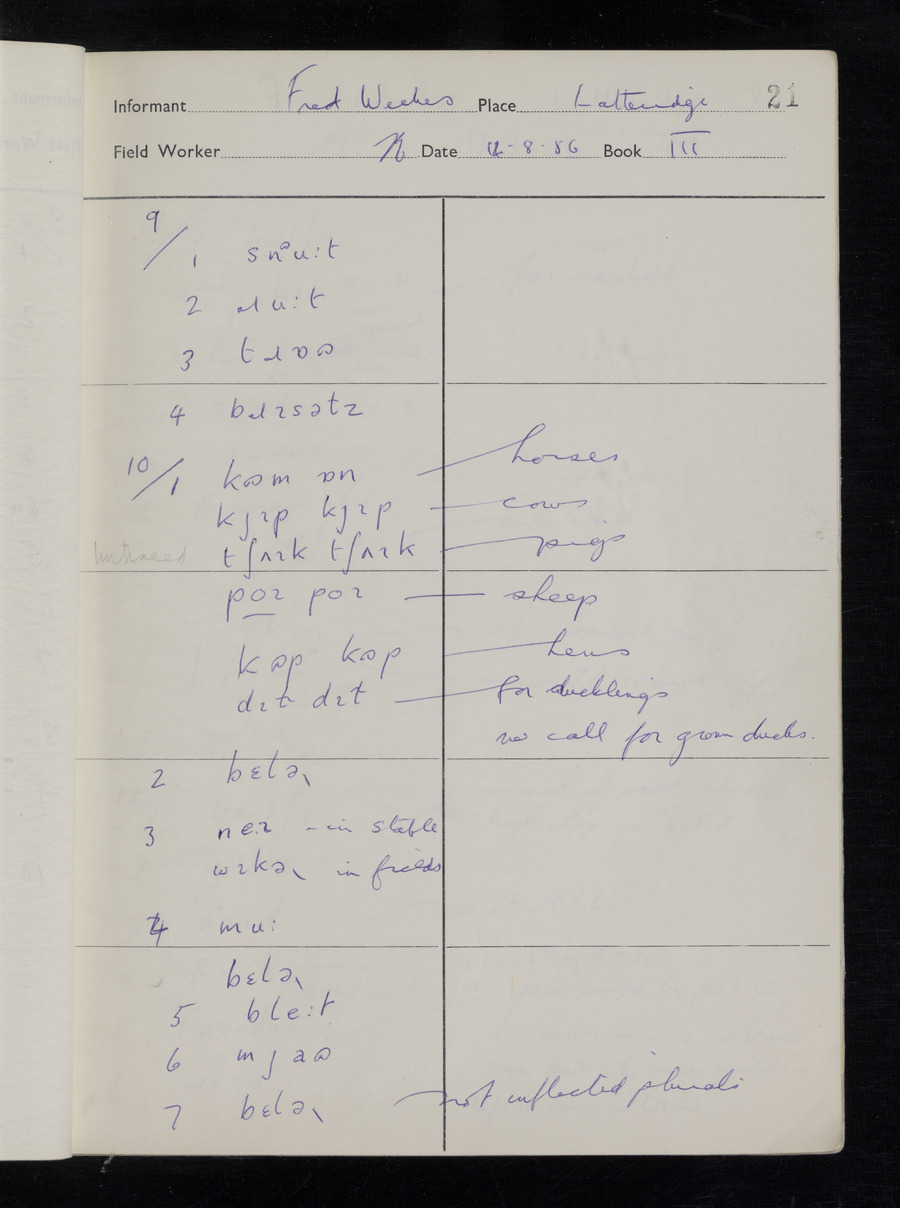 Informant Fred Weekes Place Latteridge 21
Field Worker Date 12-8-56 Book III
9/1 snᵊu:t
2 ɹu:t
3 tɹɒɷ
4 bɹɪsətz
10/1 kɷm ɒn — horses
kjɪp kjɪp — cows
tʃʌɪk tʃʌɪk — pigs
poɪ poɪ — sheep
kɷp kɷp — hens
dɪt dɪt — for ducklings
no call for grown ducks.
2 bɛlə,
3 neɪ - in stable
wɪkə, in fields
4 mu:
bɛlə,
5 ble:t
6 mjaɷ
7 bɛlə, — not inflected plurals